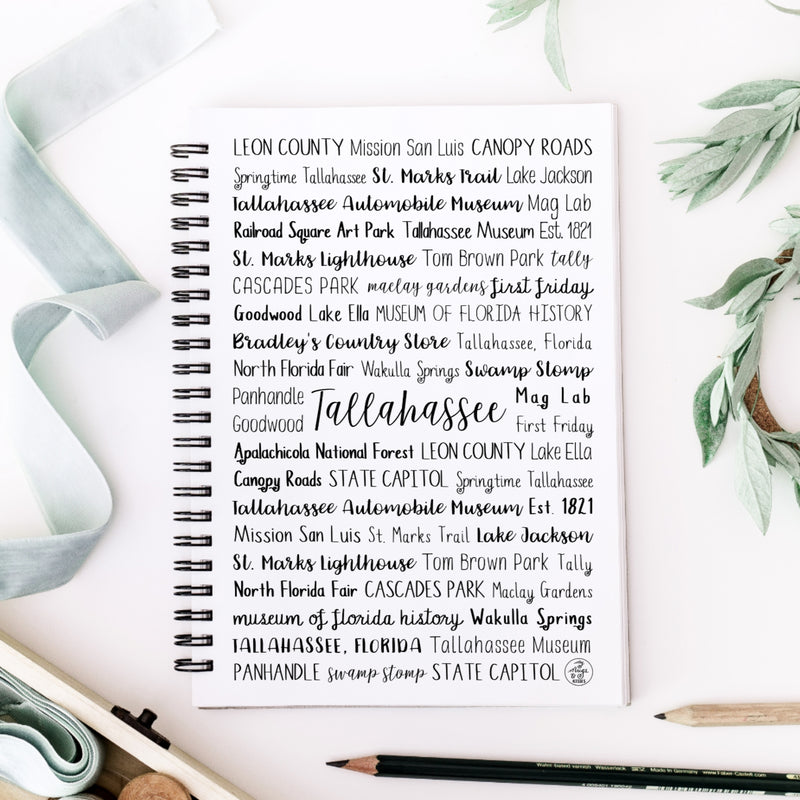 LEON COUNTY Mission San Luis CANOPY ROADS
Springtime Tallahassee St. Marks Trail Lake Jackson
Tallahassee Automobile Museum Mag Lab
Railroad Square Art Park Tallahassee Museum Est. 1821
St. Marks Lighthouse Tom Brown Park tally
CASCADES PARK maclay gardens first friday
Goodwood Lake Ella MUSEUM OF FLORIDA HISTORY
Bradley's Country Store Tallahassee, Florida
North Florida Fair Wakulla Springs Swamp Stomp
Panhandle Tallahassee Mag Lab
Goodwood First Friday
Apalachicola National Forest LEON COUNTY Lake Ella
Canopy Roads STATE CAPITOL Springtime Tallahassee
Tallahassee Automobile Museum Est. 1821
Mission San Luis St. Marks Trail Lake Jackson
St. Marks Lighthouse Tom Brown Park Tally
North Florida Fair CASCADES PARK Maclay Gardens
museum of florida history Wakulla Springs
TALLAHASSEE, FLORIDA Tallahassee Museum
PANHANDLE swamp stomp STATE CAPITOL
Made in Germany www.Faber-Castell